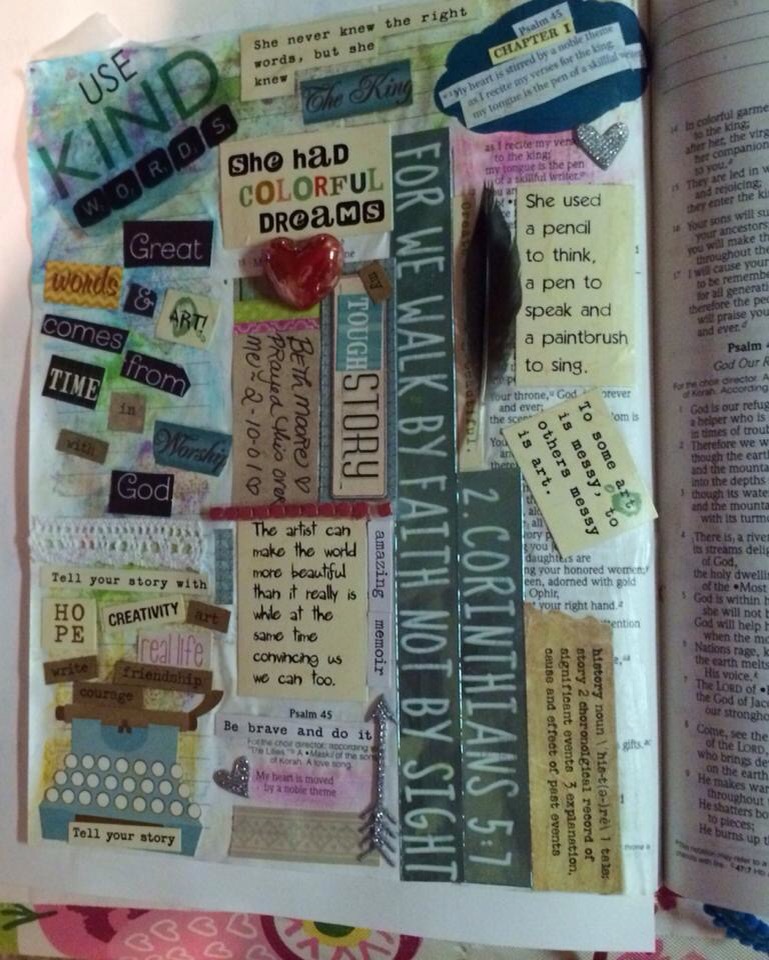 USE
KIND
WORDS
She never knew the right
words, but she
knew
The King
Psalm 45
CHAPTER I
My heart is stirred by a noble theme
as I recite my verses for the king,
my tongue is the pen of a skillful writer
She had
COLORFUL
DREAMS
Great
words
&
ART!
comes
from
TIME
in
with
Worship
God
Tell your story with
HO
PE
CREATIVITY
art
real life
write
friendship
courage
Tell your story
Beth moore ♡
prayed this over
me ~ 2-10-01 ♡
my
TOUGH
STORY
The artist can
make the world
more beautiful
than it really is
while at the
same time
convincing us
we can too.
amazing memoir
Psalm 45
Be brave and do it
For the choir director: according
"The Lilies." A •Maskil of the sons
of Korah. A love song.
My heart is moved
by a noble theme
FOR WE WALK BY FAITH NOT BY SIGHT
2. CORINTHIANS 5:7
as I recite my verses
to the king;
my tongue is the pen
of a skillful writer.
She used
a pencil
to think,
a pen to
speak and
a paintbrush
to sing.
your throne, God
forever
and ever;
To some art
is messy, to
others messy
is art.
daughters are
your honored women;
adorned with gold
Ophir.
your right hand.
gifts.
history noun \ˈhis-t(ə-)rē\ 1 tale:
story 2 chronolgical record of
significant events 3 explanation,
cause and effect of past events
14 In colorful garme
to the king;
after her, the virg
her companion
to you.
15 They are led in w
and rejoicing;
they enter the ki
16 Your sons will su
your ancestors;
you will make th
throughout the
17 I will cause your
to be remember
for all generati
therefore the pe
will praise you
and ever.
Psalm 4
God Our R
For the choir director. A
of Korah. According
1 God is our refug
a helper who is
in times of troub
2 Therefore we w
though the earth
and the mounta
into the depths
3 though its water
and the mounta
with its turmo
4 There is a river
its streams deligh
of God,
the holy dwellin
of the •Most
5 God is within h
she will not b
God will help h
when the mo
6 Nations rage, k
the earth melts
His voice.
7 The LORD of •H
the God of Jac
our strongho
8 Come, see the
of the LORD,
who brings de
on the earth
9 He makes war
throughout
He shatters bo
to pieces;
He burns up th